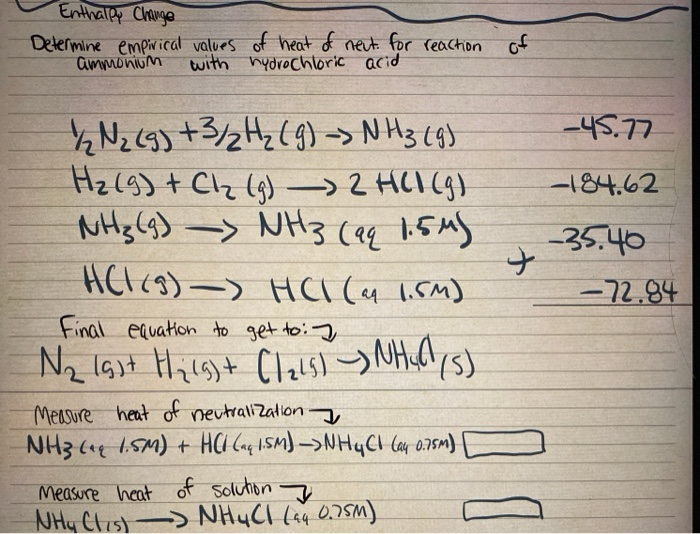 Enthalpy Change
Determine empirical values of heat of neut. for reaction of
ammonium with hydrochloric acid
1/2 N2(g) + 3/2 H2(g) -> NH3(g) -45.77
H2(g) + Cl2(g) -> 2 HCl(g) -184.62
NH3(g) -> NH3(aq 1.5M) -35.40
HCl(g) -> HCl(aq 1.5M) + -72.84
Final equation to get to:
N2(g) + H2(g) + Cl2(g) -> NH4Cl(s)
Measure heat of neutralization
NH3(aq 1.5M) + HCl(aq 1.5M) -> NH4Cl(aq 0.75M)
Measure heat of solution
NH4Cl(s) -> NH4Cl(aq 0.75M)